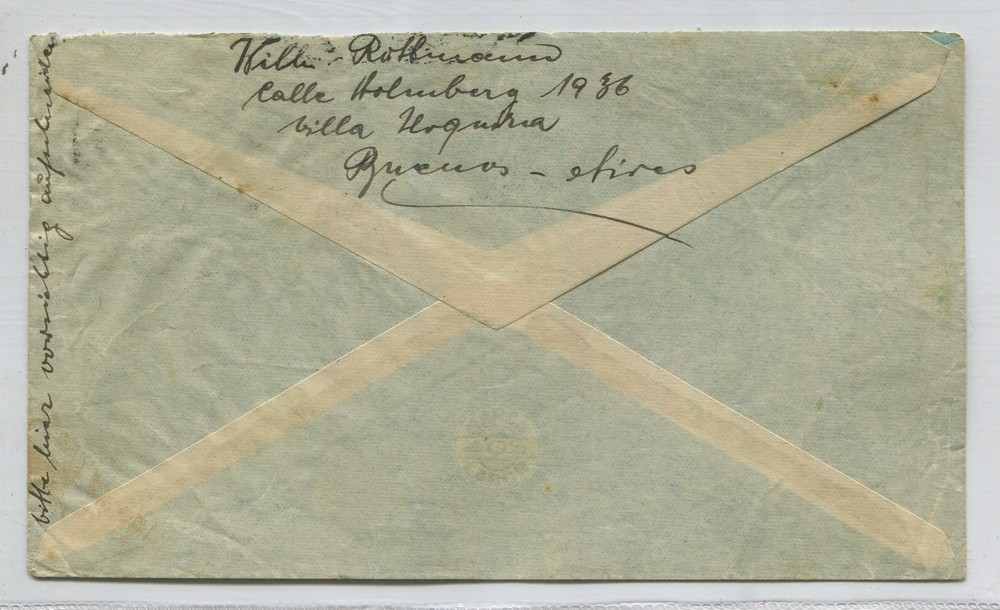 Willi Rottmann
Calle Holmberg 1936
Villa Urquiza
Buenos - Aires
bitte hier vorsichtig aufschneiden